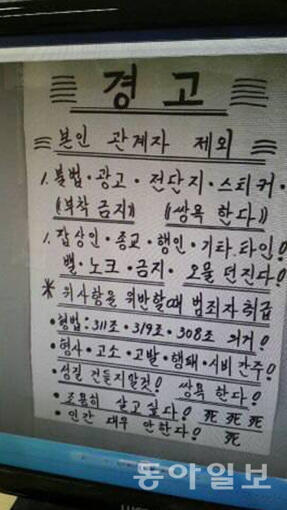 경고
본인 관계자 제외
1. 불법·광고·전단지·스티커·
《부착 금지》 《쌍욕 한다》
1. 잡상인·종교·행인·기타.타인!
벨·노크·금지· 오물 던진다!
* 위사항을 위반할때 범죄자 취급
• 형법: 311조·319조·308조 의거!
• 형사·고소·고발·행패·시비 간주!
• 성질 건들지말것! 쌍욕 한다!
• 조용히 살고 싶다! 死 死 死
• 인간 대우 안한다! 死
동아일보